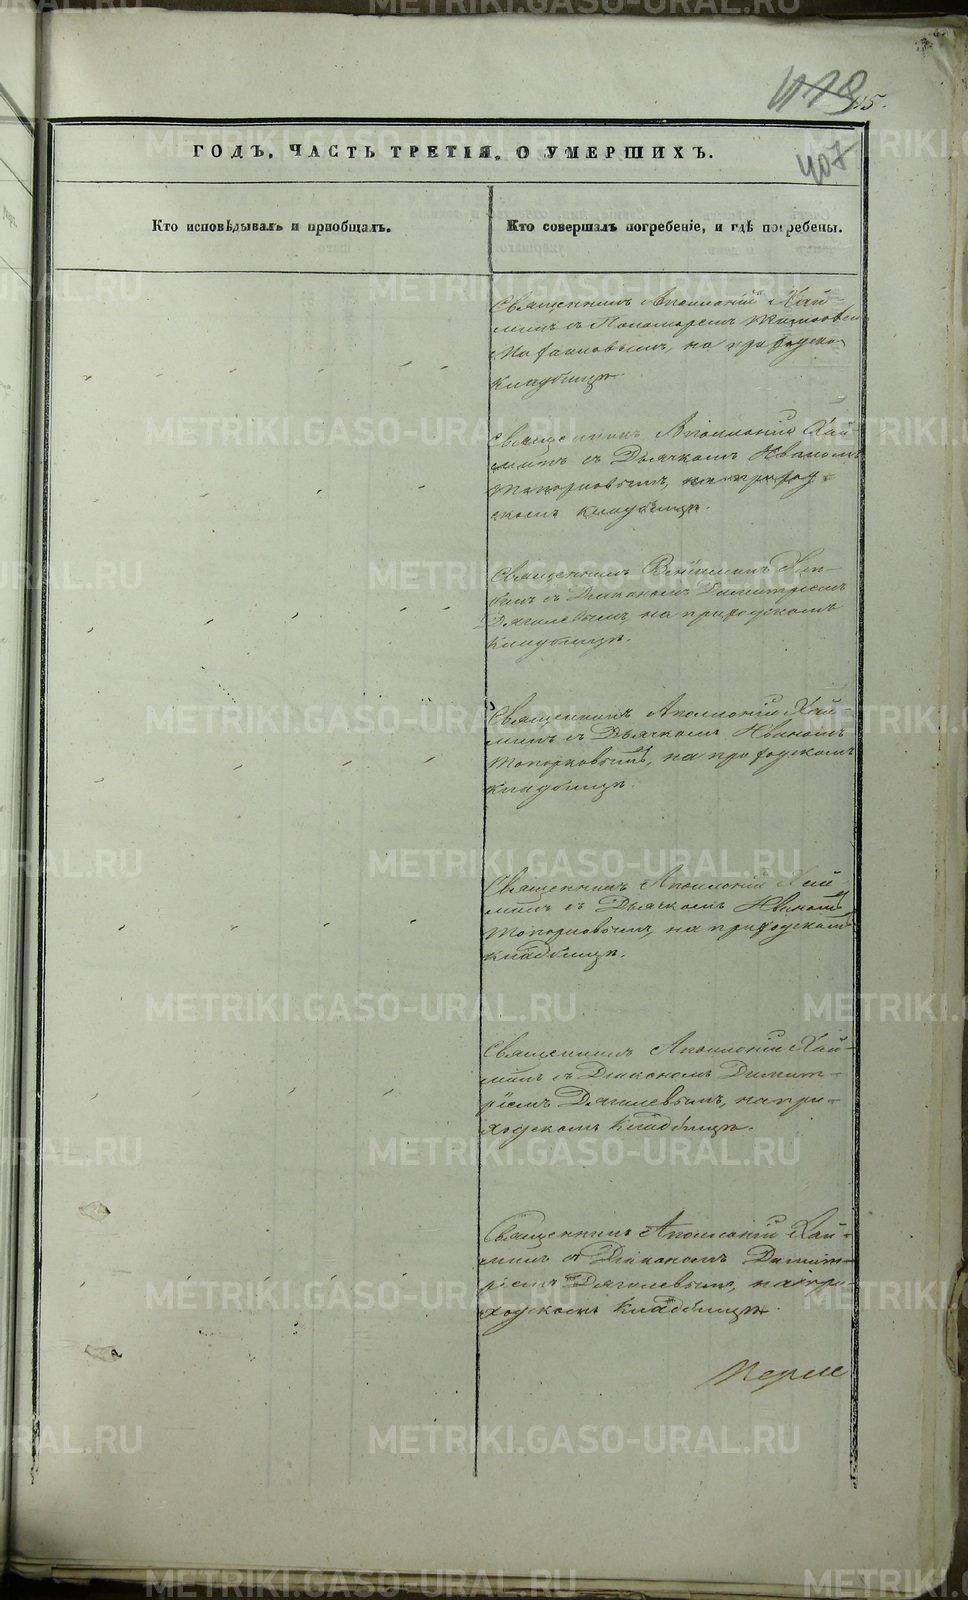 419
115.
407
ГОДЪ, ЧАСТЬ ТРЕТІЯ, О УМЕРШИХЪ.
Кто исповѣдывалъ и приобщалъ.
Кто совершалъ погребеніе, и гдѣ погребены.
Священникъ Аполлоній Хай-
минъ съ Пономаремъ
на приходско
кладбищѣ
Священникъ Аполлоній Хай-
минъ съ Дьячкомъ Иваномъ
Топорковымъ, на приход-
скомъ кладбищѣ.
Священникъ Веніаминъ
съ Діакономъ Димитріемъ
Дягилевымъ, на приходскомъ
кладбищѣ.
Священникъ Аполлоній Хай-
минъ съ Дьячкомъ Иваномъ
Топорковымъ, на приходскомъ
кладбищѣ.
Священникъ Аполлоній Хай
минъ съ Дьячкомъ Иваномъ
Топорковымъ, на приходскомъ
кладбищѣ.
Священникъ Аполлоній Хай-
минъ съ Діакономъ Димит-
ріемъ Дягилевымъ, на при-
ходскомъ кладбищѣ.
Священникъ Аполлоній Хай-
минъ съ Діакономъ Димит-
ріемъ Дягилевымъ, на при-
ходскомъ кладбищѣ.
METRIKI.GASO-URAL.RU